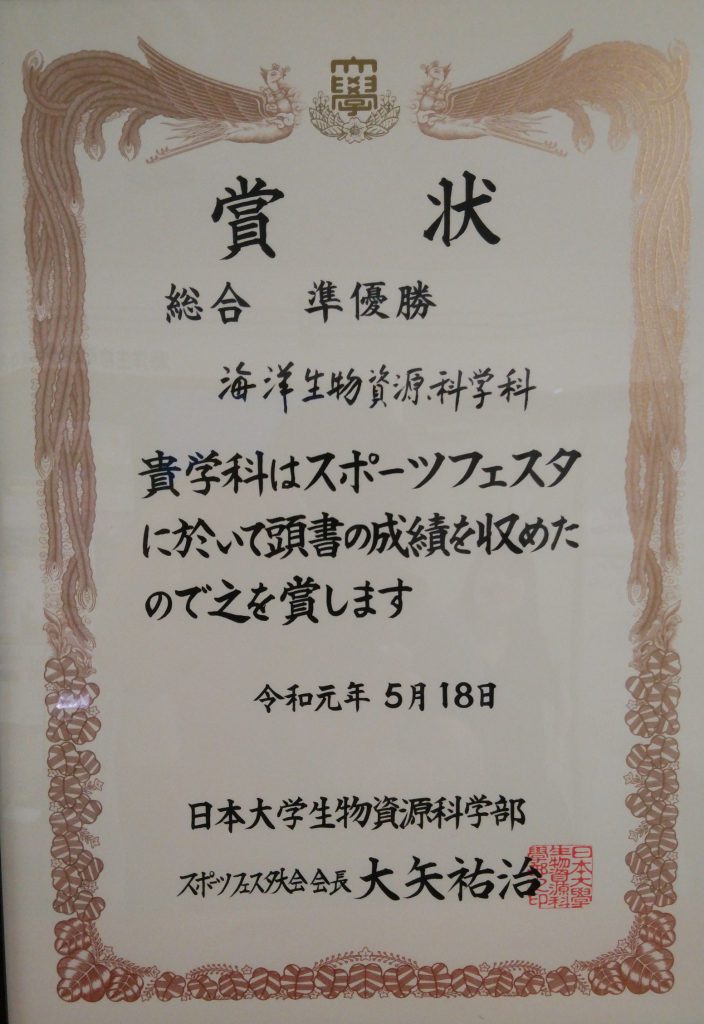 大學
賞 状
総合 準優勝
海洋生物資源科学科
貴学科はスポーツフェスタ
に於いて頭書の成績を収めた
ので之を賞します
令和元年 5月18日
日本大学生物資源科学部
スポーツフェスタ大会会長 大矢祐治
日本大學
生物資源科
學部之印